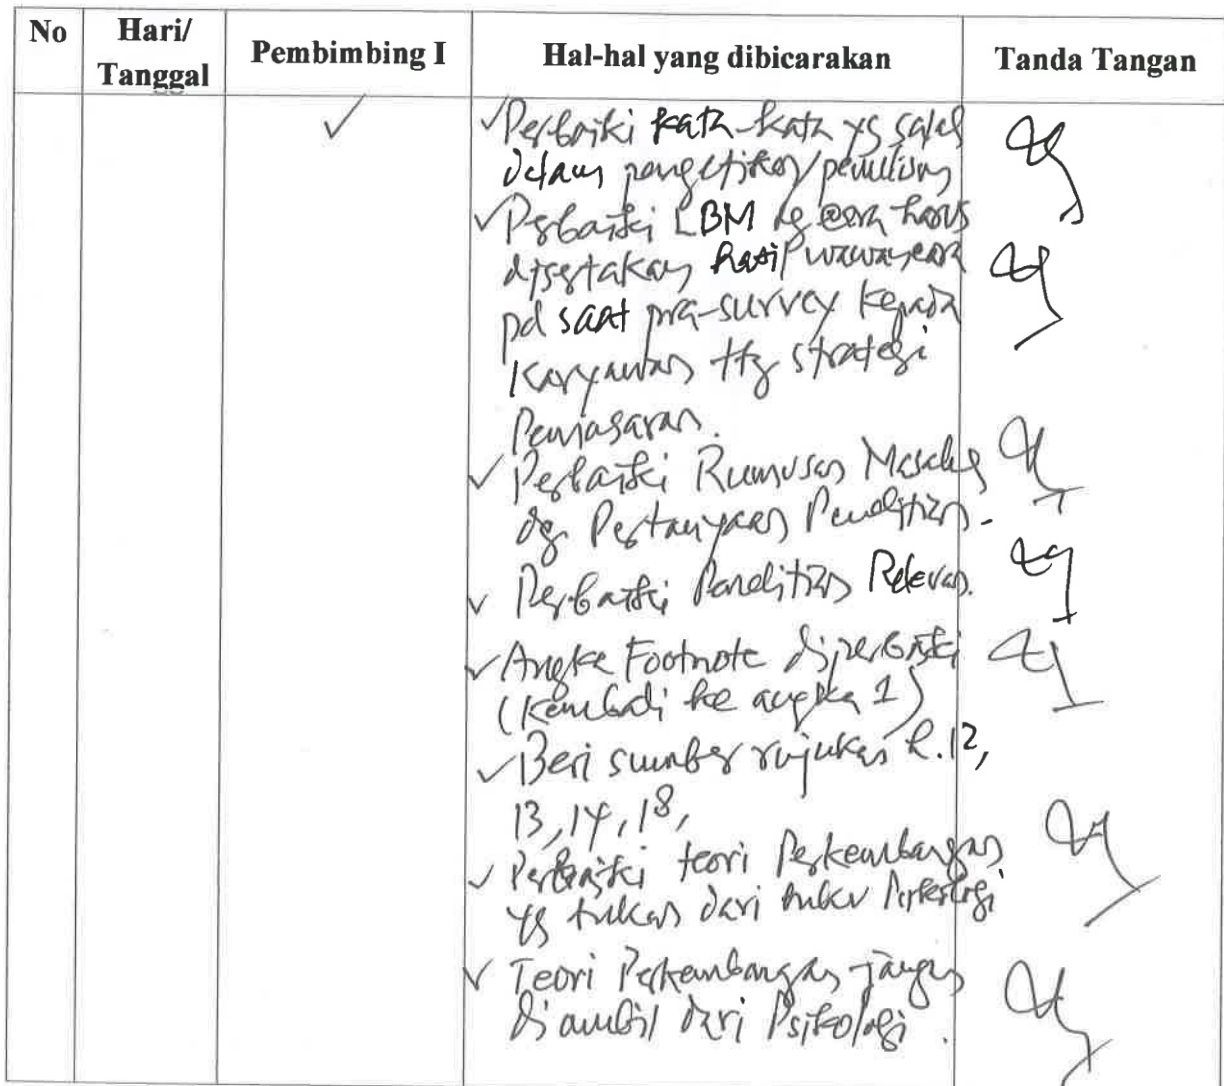 No
Hari/
Tanggal
Pembimbing I
Hal-hal yang dibicarakan
Tanda Tangan
Perbaiki kata-kata yg salah
dalam pengetikan/penulisan
Perbaiki LBM dg cara harus
disertakan hasil wawancara
pd saat pra-survey kepada
Karyawan ttg strategi
Pemasaran.
Perbaiki Rumusan Masalah
dg. Pertanyaan Penelitian.
Perbaiki Penelitian Relevan.
Angka Footnote diperbaiki
(Kembali ke angka 1)
Beri sumber rujukan h.12,
13, 14, 18,
Perbaiki teori Perkembangan
yg bukan dari buku Psikologi
Teori Perkembangan jangan
diambil dari Psikologi.